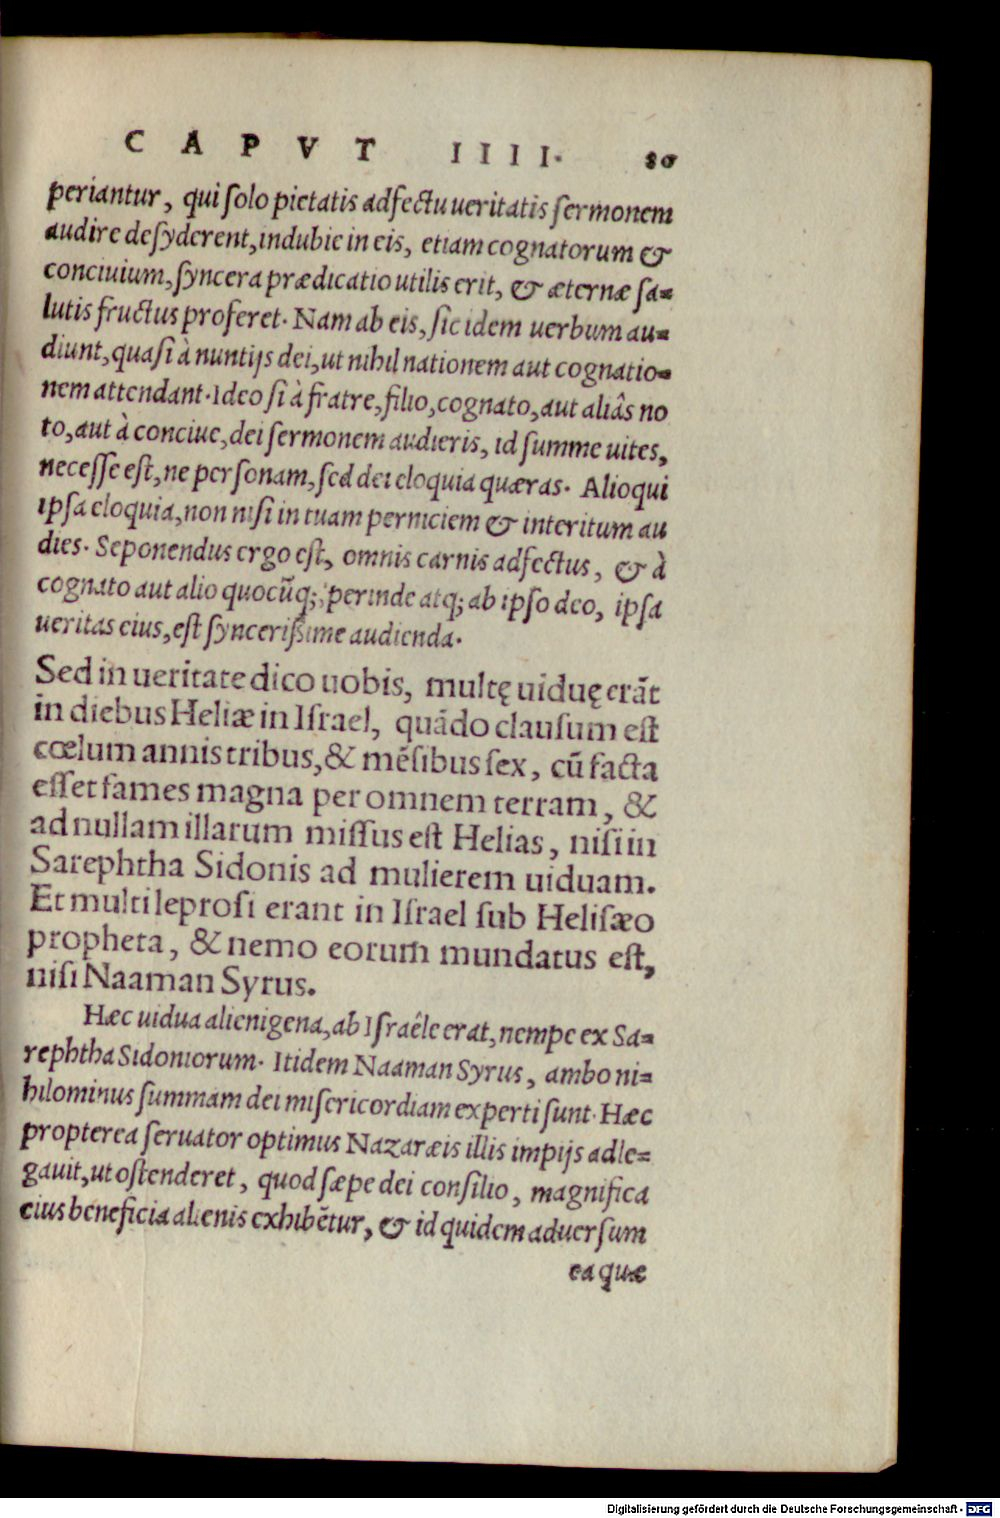 CAPVT IIII. 80
periantur, qui ſolo pietatis adfectu ueritatis ſermonem
audire deſyderent, indubie in eis, etiam cognatorum &
conciuium, ſyncera prædicatio utilis erit, & æternæ ſa=
lutis fructus proferet. Nam ab eis, ſic idem uerbum au=
diunt, quaſi à nuntijs dei, ut nihil nationem aut cognatio=
nem attendant. Ideo ſi à fratre, filio, cognato, aut aliâs no
to, aut à conciue, dei ſermonem audieris, id ſumme uites,
neceſſe eſt, ne perſonam, ſed dei eloquia quæras. Alioqui
ipſa eloquia, non niſi in tuam perniciem & interitum au
dies. Seponendus ergo eſt, omnis carnis adfectus, & à
cognato aut alio quocũq; perinde atq; ab ipſo deo, ipſa
ueritas eius, eſt ſynceriſſime audienda.
Sed in ueritate dico uobis, multę uiduę erāt
in diebus Heliæ in Iſrael, quādo clauſum eſt
cœlum annis tribus, & mēſibus ſex, cū facta
eſſet fames magna per omnem terram, &
ad nullam illarum miſſus eſt Helias, niſi in
Sarephtha Sidonis ad mulierem uiduam.
Et multi leproſi erant in Iſrael ſub Heliſæo
propheta, & nemo eorum mundatus eſt,
niſi Naaman Syrus.
Hæc uidua alienigena, ab Iſraêle erat, nempe ex Sa=
rephtha Sidoniorum. Itidem Naaman Syrus, ambo ni=
hilominus ſummam dei miſericordiam experti ſunt. Hæc
propterea ſeruator optimus Nazaræis illis impijs adle=
gauit, ut oſtenderet, quod ſæpe dei conſilio, magnifica
eius beneficia alienis exhibētur, & id quidem aduerſum
ea quæ
Digitalisierung gefördert durch die Deutsche Forschungsgemeinschaft - DFG